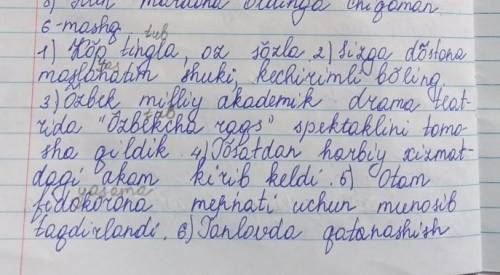 8) Jiddi mardona oldinga chiqaman.
6-mashq
tub
1) Koʻp tingla, oz sõzla 2) Sizga dõstona
yas
maslahatim shuki, kechirimli bõling
3) Õzbek milliy akademik drama teat-
tub
rida "Õzbekcha raqs" spektaklini tomo-
sha qildik. 4) Tõsatdan harbiy xizmat-
dagi akam kirib keldi. 5) Otam
yasama
fidokorona mehnati uchun munosib
taqdirlandi. 6) Tanlovda qatanashish